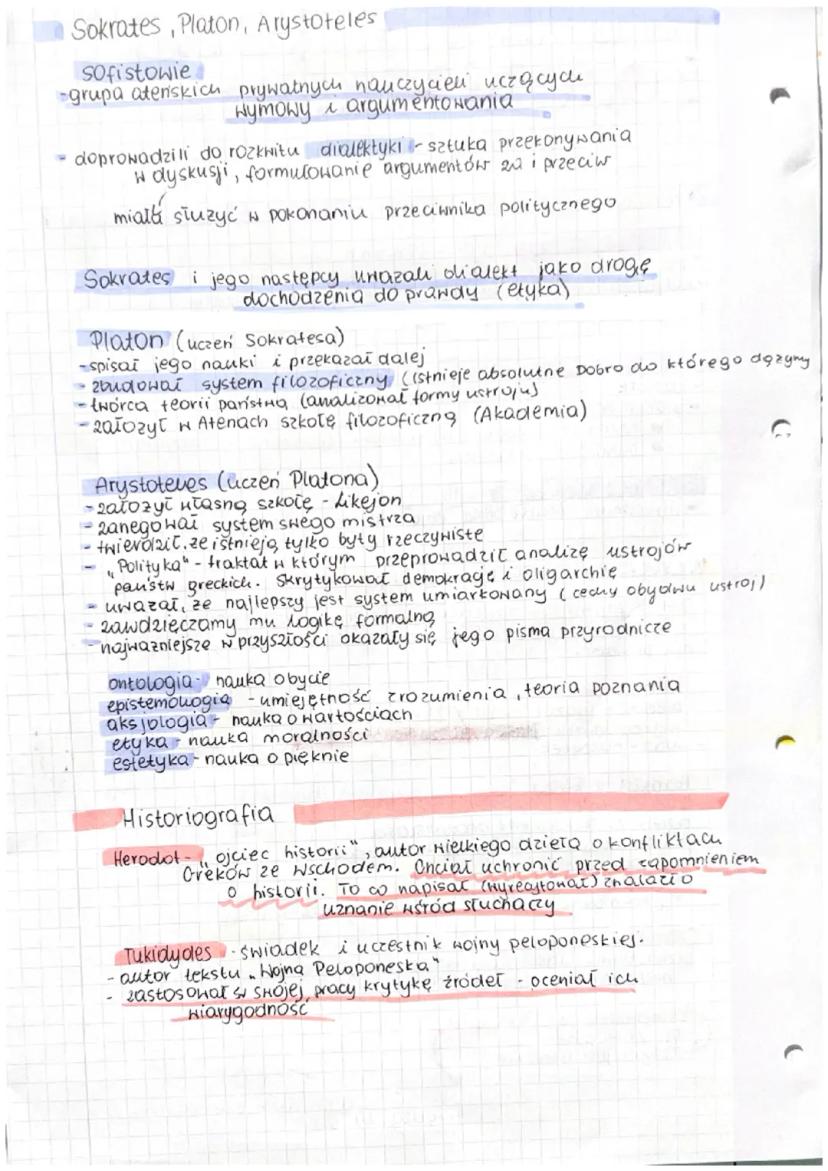 Sokrates, Platon, Arystoteles
sofistowie
-grupa ateńskich prywatnych nauczycieli uczących
wymowy i argumentowania
- doprowadzili do rozkwitu dialektyki - sztuka przekonywania
w dyskusji, formułowanie argumentów za i przeciw
miała służyć w pokonaniu przeciwnika politycznego
Sokrates i jego następcy uważali dialekt jako drogę
dochodzenia do prawdy (etyka)
Platon (uczeń Sokratesa)
-spisał jego nauki i przekazał dalej
- zbudował system filozoficzny (istnieje absolutne Dobro do którego dążymy
- twórca teorii państwa (analizował formy ustroju)
- założył w Atenach szkołę filozoficzną (Akademia)
Arystoteles (uczeń Platona)
- założył własną szkołę - Likejon
- zanegował system swego mistrza
- twierdził, że istnieją tylko byty rzeczywiste
- "Polityka" - traktat w którym przeprowadził analizę ustrojów
państw greckich. Skrytykował demokrację i oligarchię
- uważał, że najlepszy jest system umiarkowany (cechy obydwu ustroj)
- zawdzięczamy mu logikę formalną
- najważniejsze w przyszłości okazały się jego pisma przyrodnicze
ontologia - nauka o bycie
epistemologia - umiejętność zrozumienia, teoria poznania
aksjologia - nauka o wartościach
etyka - nauka moralności
estetyka - nauka o pięknie
Historiografia
Herodot - "ojciec historii", autor wielkiego dzieła o konfliktach
Greków ze Wschodem. Chciał uchronić przed zapomnieniem
o historii. To co napisał (wyrecytował) znalazło
uznanie wśród słuchaczy
Tukidydes - świadek i uczestnik wojny peloponeskiej.
- autor tekstu "Wojna Peloponeska"
- zastosował w swojej pracy krytykę źródeł - oceniał ich
wiarygodność